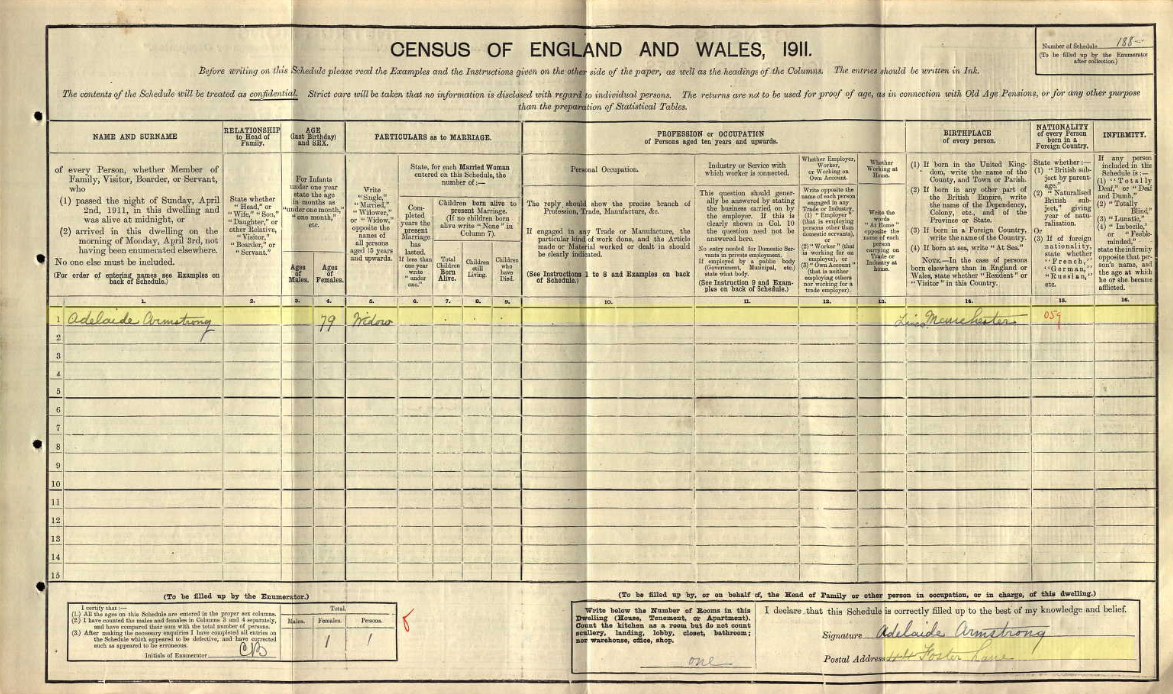 CENSUS OF ENGLAND AND WALES, 1911.
Number of Schedule 188
(To be filled up by the Enumerator
after collection.)
Before writing on this Schedule please read the Examples and the Instructions given on the other side of the paper, as well as the headings of the Columns. The entries should be written in Ink.
The contents of the Schedule will be treated as confidential. Strict care will be taken that no information is disclosed with regard to individual persons. The returns are not to be used for proof of age, as in connection with Old Age Pensions, or for any other purpose
than the preparation of Statistical Tables.
NAME AND SURNAME
of every Person, whether Member of
Family, Visitor, Boarder, or Servant,
who
(1) passed the night of Sunday, April
2nd, 1911, in this dwelling and
was alive at midnight, or
(2) arrived in this dwelling on the
morning of Monday, April 3rd, not
having been enumerated elsewhere.
No one else must be included.
(For order of entering names see Examples on
back of Schedule.)
RELATIONSHIP
to Head of
Family.
State whether
"Head," or
"Wife," "Son,"
"Daughter," or
other Relative,
"Visitor,"
"Boarder," or
"Servant."
AGE
(last Birthday)
and SEX.
For Infants
under one year
state the age
in months as
"under one month,"
"one month,"
etc.
Ages
of
Males.
Ages
of
Females.
PARTICULARS as to MARRIAGE.
Write
"Single,"
"Married,"
"Widower,"
or "Widow,"
opposite the
names of
all persons
aged 15 years
and upwards.
State, for each Married Woman
entered on this Schedule, the
number of:—
Completed
years the
present
Marriage
has
lasted.
If less than
one year
write
"under
one."
Children born alive to
present Marriage.
(If no children born
alive write "None" in
Column 7).
Total
Children
Born
Alive.
Children
still
Living.
Children
who
have
Died.
PROFESSION or OCCUPATION
of Persons aged ten years and upwards.
Personal Occupation.
The reply should show the precise branch of
Profession, Trade, Manufacture, &c.
If engaged in any Trade or Manufacture, the
particular kind of work done, and the Article
made or Material worked or dealt in should
be clearly indicated.
(See Instructions 1 to 8 and Examples on back
of Schedule.)
Industry or Service with
which worker is connected.
This question should gener-
ally be answered by stating
the business carried on by
the employer. If this is
clearly shown in Col. 10
the question need not be
answered here.
No entry needed for Domestic Ser-
vants in private employment.
If employed by a public body
(Government, Municipal, etc.)
state what body.
(See Instruction 9 and Exam-
ples on back of Schedule.)
Whether Employer,
Worker,
or Working on
Own Account.
Write opposite the
name of each person
engaged in any
Trade or Industry,
(1) "Employer"
(that is employing
persons other than
domestic servants),
or
(2) "Worker" (that
is working for an
employer), or
(3) "Own Account"
(that is neither
employing others
nor working for a
trade employer).
Whether
Working at
Home.
Write the
words
"At Home"
opposite the
name of each
person
carrying on
Trade or
Industry at
home.
BIRTHPLACE
of every person.
(1) If born in the United King-
dom, write the name of the
County, and Town or Parish.
(2) If born in any other part of
the British Empire, write
the name of the Dependency,
Colony, etc., and of the
Province or State.
(3) If born in a Foreign Country,
write the name of the Country.
(4) If born at sea, write "At Sea."
NOTE.—In the case of persons
born elsewhere than in England or
Wales, state whether "Resident" or
"Visitor" in this Country.
NATIONALITY
of every Person
born in a
Foreign Country.
State whether:—
(1) "British sub-
ject by parent-
age."
(2) "Naturalised
British sub-
ject," giving
year of natu-
ralisation.
Or
(3) If of foreign
nationality,
state whether
"French,"
"German,"
"Russian,"
etc.
INFIRMITY.
If any person
included in this
Schedule is:—
(1) "Totally
Deaf," or "Deaf
and Dumb,"
(2) "Totally
Blind,"
(3) "Lunatic,"
(4) "Imbecile,"
or "Feeble-
minded,"
state the infirmity
opposite that per-
son's name, and
the age at which
he or she became
afflicted.
1. 2. 3. 4. 5. 6. 7. 8. 9. 10. 11. 12. 13. 14. 15. 16.
1 Adelaide Armstrong 79 Widow Manchester 059
2
3
4
5
6
7
8
9
10
11
12
13
14
15
(To be filled up by the Enumerator.)
I certify that:—
(1.) All the ages on this Schedule are entered in the proper sex columns.
(2.) I have counted the males and females in Columns 3 and 4 separately,
and have compared their sum with the total number of persons.
(3.) After making the necessary enquiries I have completed all entries on
the Schedule which appeared to be defective, and have corrected
such as appeared to be erroneous.
Initials of Enumerator CB
Total.
Males. Females. Persons.
1 1
(To be filled up by, or on behalf of, the Head of Family or other person in occupation, or in charge, of this dwelling.)
Write below the Number of Rooms in this
Dwelling (House, Tenement, or Apartment).
Count the kitchen as a room but do not count
scullery, landing, lobby, closet, bathroom;
nor warehouse, office, shop.
one
I declare that this Schedule is correctly filled up to the best of my knowledge and belief.
Signature Adelaide Armstrong
Postal Address Foster Lane